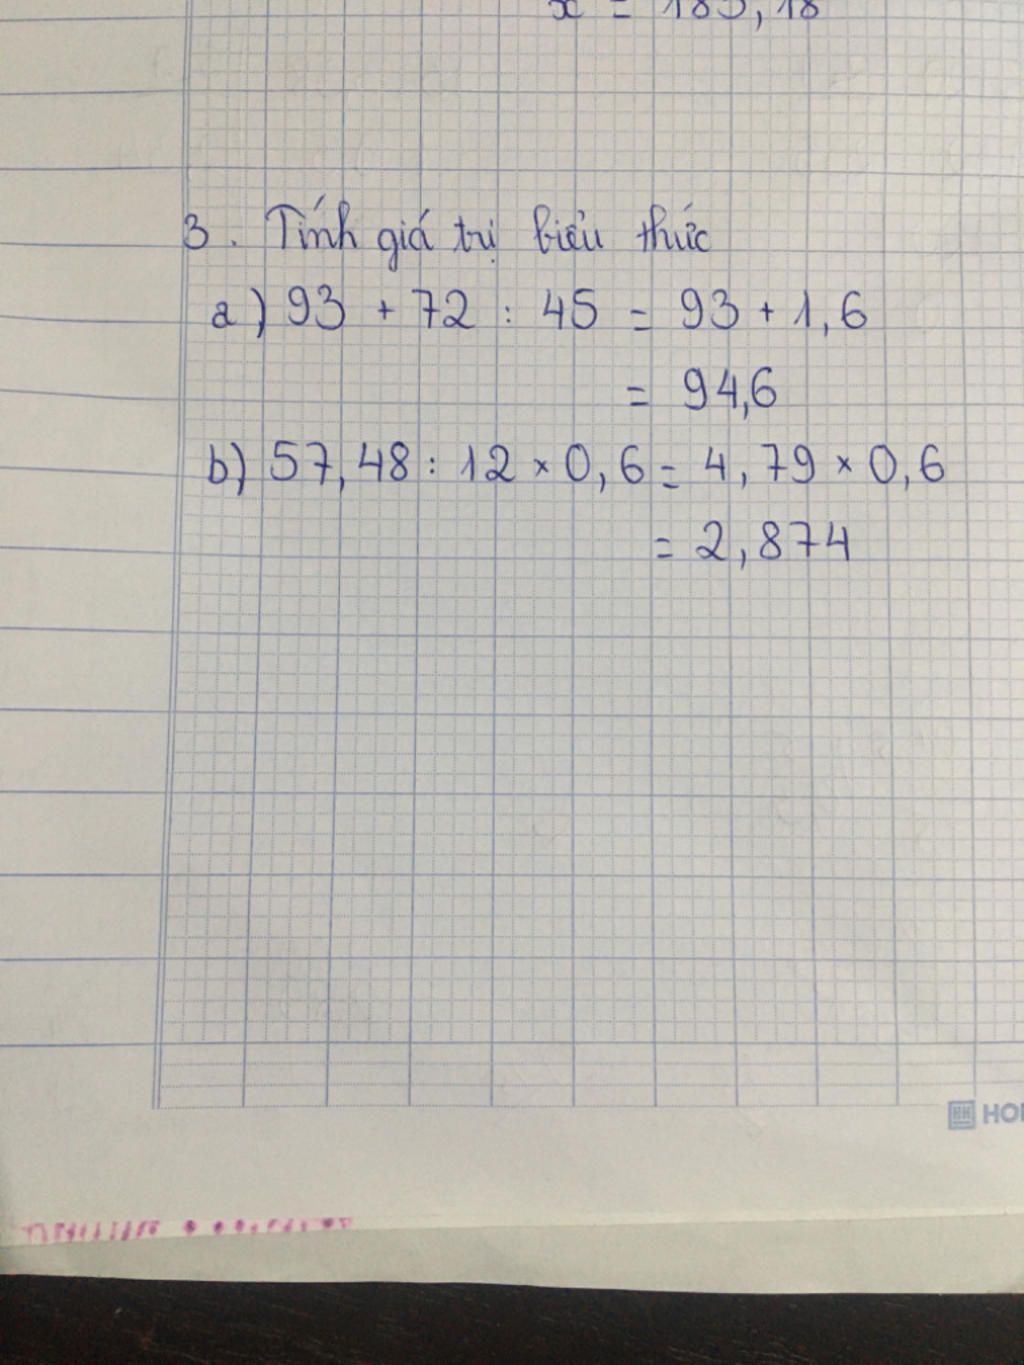 x = 185,18
3. Tính giá trị biểu thức
a) 93 + 72 : 45 = 93 + 1,6
= 94,6
b) 57,48 : 12 × 0,6 = 4,79 × 0,6
= 2,874
HH